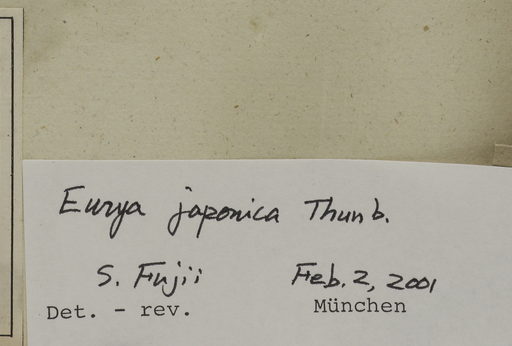 Eurya japonica Thunb.
S. Fujii Feb. 2, 2001
Det. - rev. München